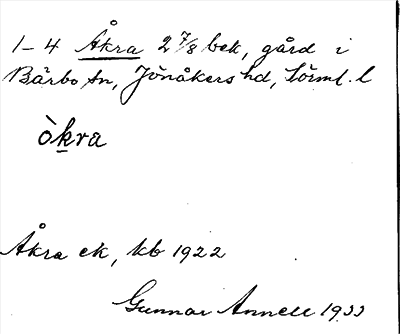 1-4 Åkra 2 7/8 bek, gård i
Bärbo sn, Jönåkers hd, Sörml. l
òkra
Åkra ek, kb 1922
Gunnar Annell 1933